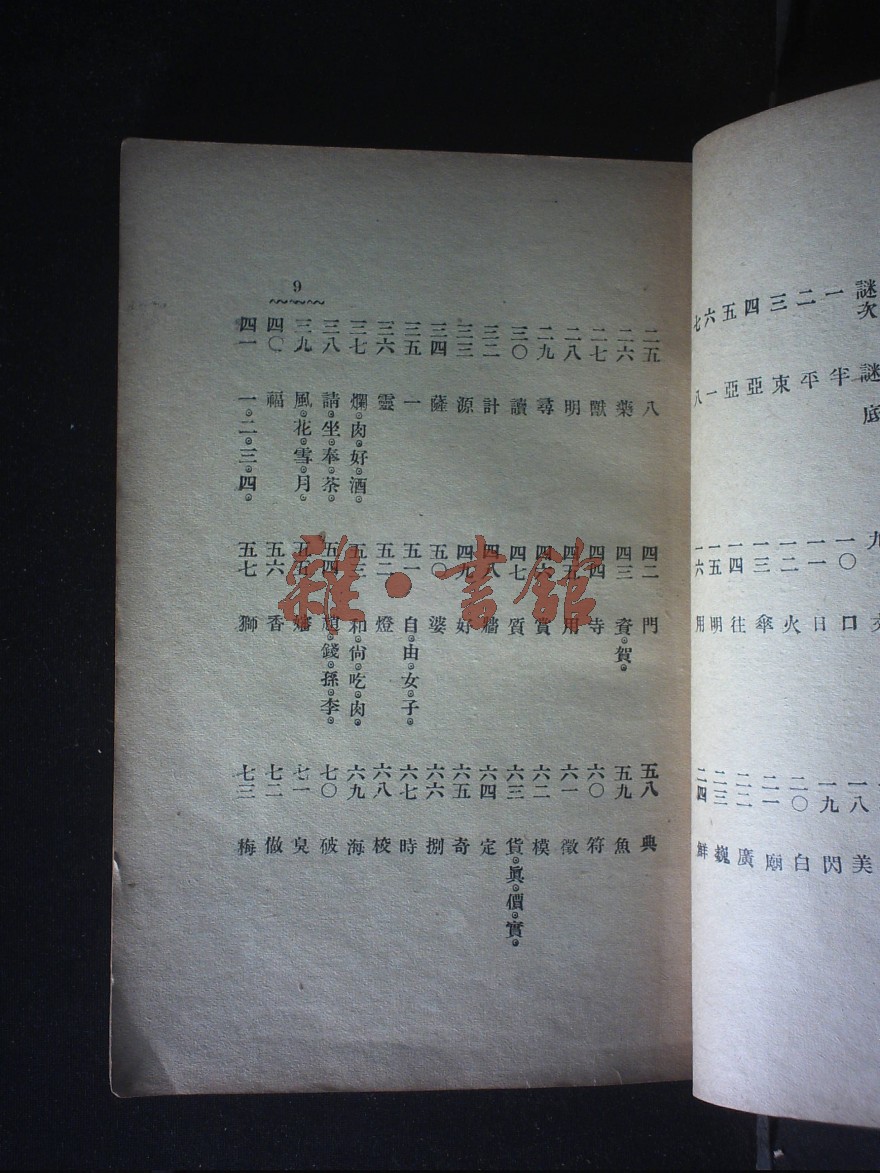 謎次 謎底
一 半
二 平
三 束
四 亞
五 亞
六 一
七 八
九
一〇 口
一一 日
一二 火
一三 傘
一四 往
一五 明
一六 用
一八 美
一九 閃
二〇 白
二一 廟
二二 廣
二三 巍
二四 鮮
9
二五 八
二六 藥
二七 獸
二八 明
二九 尋
三〇 讀
三二 計
三三 源
三四 薩
三五 一
三六 靈
三七 爛肉好酒
三八 請坐奉茶
三九 風花雪月
四〇 福
四一 一二三四
四二 門
四三 資賀
四四 寺
四五 用
四六 賞
四七 質
四八 牆
四九 好
五〇 婆
五一 自由女子
五二 燈
五三 和尙吃肉
五四 趙錢孫李
五五
五六 香
五七 獅
五八 典
五九 魚
六〇 符
六一 徵
六二 模
六三 貨眞價實
六四 定
六五 奇
六六 捌
六七 時
六八 梭
六九 海
七〇 破
七一 臭
七二 做
七三 梅
雜·書館